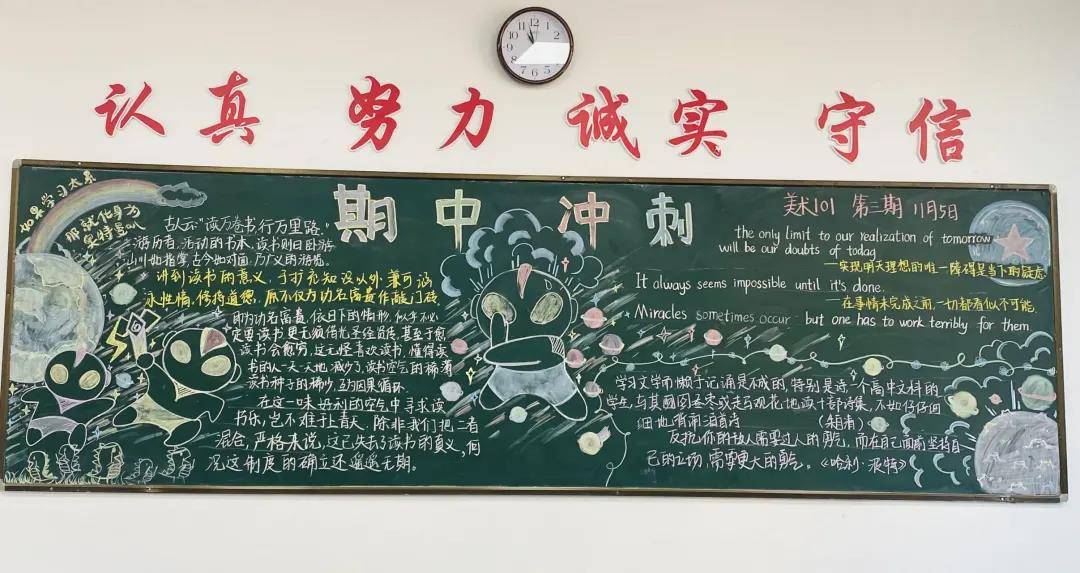 认真 努力 诚实 守信
期中冲刺
美术101 第三期 11月5日
如果学习太累
那就化身为
奥特曼叭
古人云“读万卷书,行万里路。”
游历者,活动的书本,读书则曰卧游
山川如指掌,古今如对面,乃广义的游
讲到读书的意义,于扩充知识以外兼可涵
永性情,修持道德,原不仅为功名富贵作敲门砖
即为功名富贵,依目下的情形,似乎不必
定要读书更无须借光圣经贤传,甚至于愈
读书会愈穷,这无怪喜欢读书,懂得读
书的人一天一天地减少了,读书空气的稀薄
读书种子的稀少,互为因果循环
在这一味好利的空气中寻求读
书乐,岂不难于上青天,除非我们把二者
混合,严格来说,这已失去了读书的真义,何
况这制度的确立还遥遥无期。
the only limit to our realization of tomorrow
will be our doubts of today
—实现明天理想的唯一障碍是当下的疑虑
It always seems impossible until it's done.
—在事情未完成之前,一切都看似不可能
Miracles sometimes occur but one has to work terribly for them
学习文学而懒于记诵是不成的,特别是诗一个高中文科的
学生,与其囫囵吞枣或走马观花地读十部诗集,不如仔仔细
细地背诵三百首诗 (朱自清)
反抗你的敌人需要过人的勇气,而在自己面前坚持自
己的立场,需要更大的勇气。《哈利·波特》